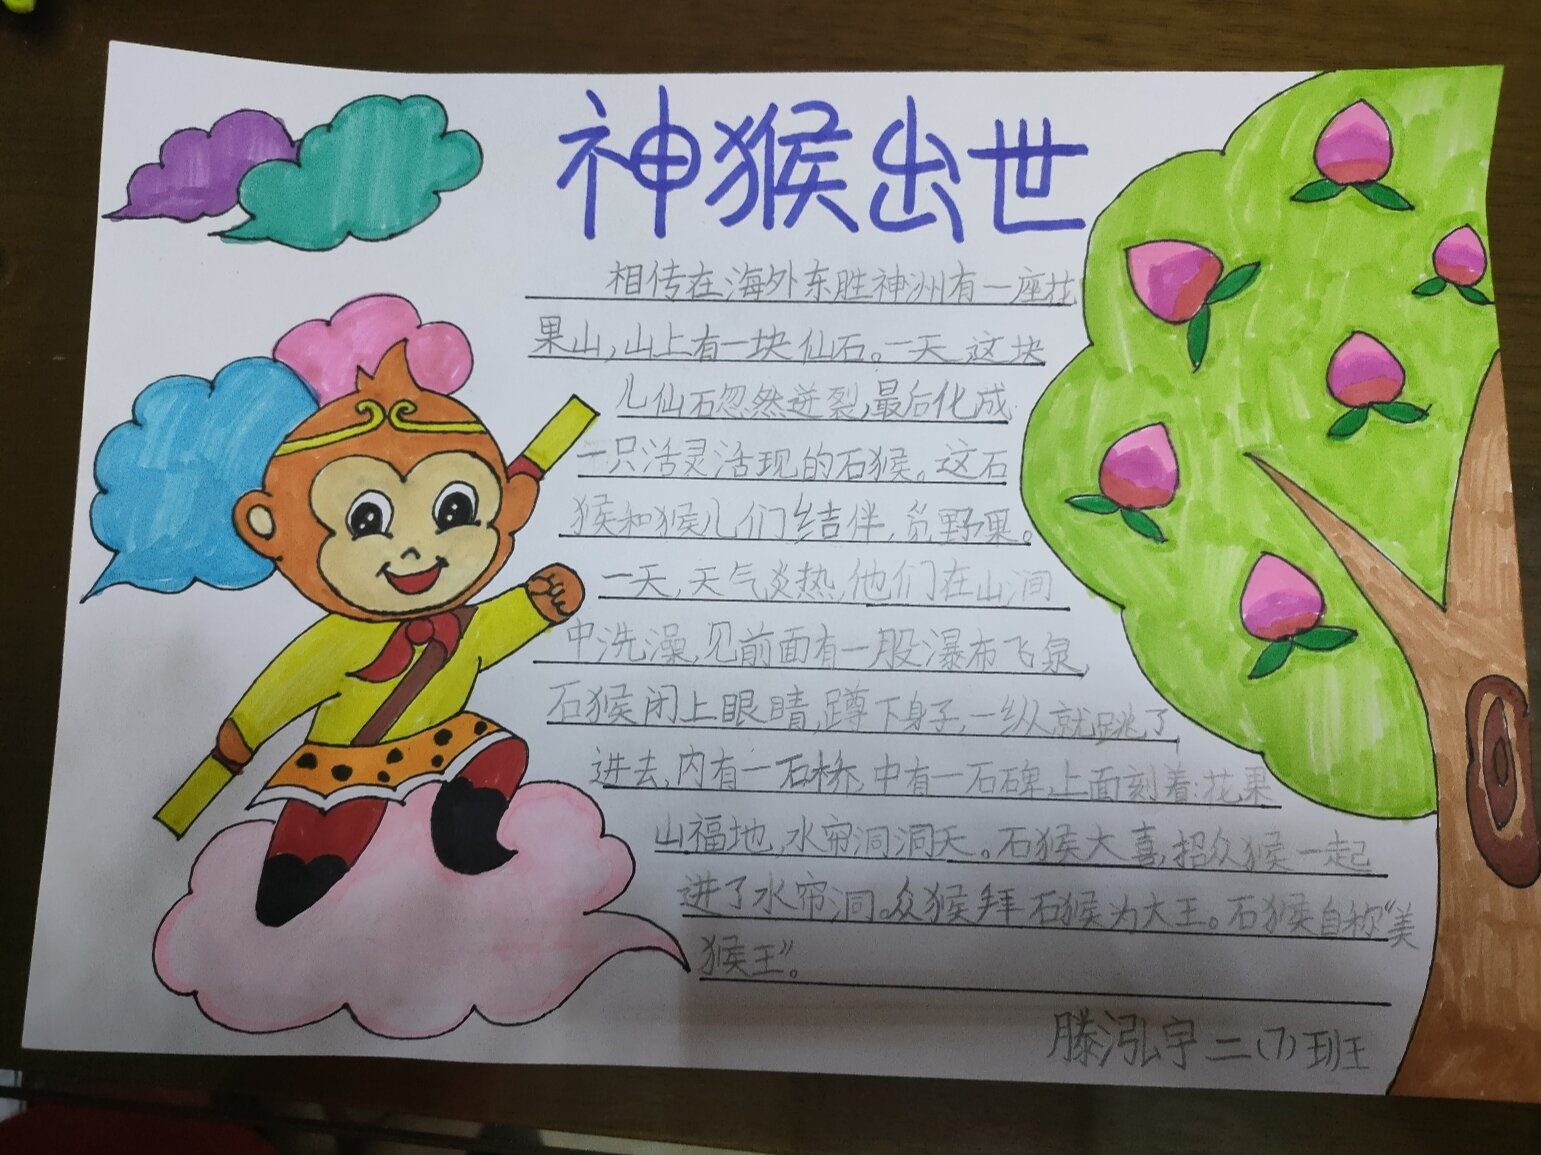 神猴出世
相传在海外东胜神洲有一座花
果山,山上有一块仙石。一天,这块
儿仙石忽然迸裂,最后化成
一只活灵活现的石猴。这石
猴和猴儿们结伴,觅野果。
一天,天气炎热,他们在山涧
中洗澡,见前面有一股瀑布飞泉,
石猴闭上眼睛,蹲下身子,一纵就跳了
进去,内有一石桥,中有一石碑,上面刻着:花果
山福地,水帘洞洞天。石猴大喜,招众猴一起
进了水帘洞。众猴拜石猴为大王。石猴自称“美
猴王”。
滕泓宇 二(7)班